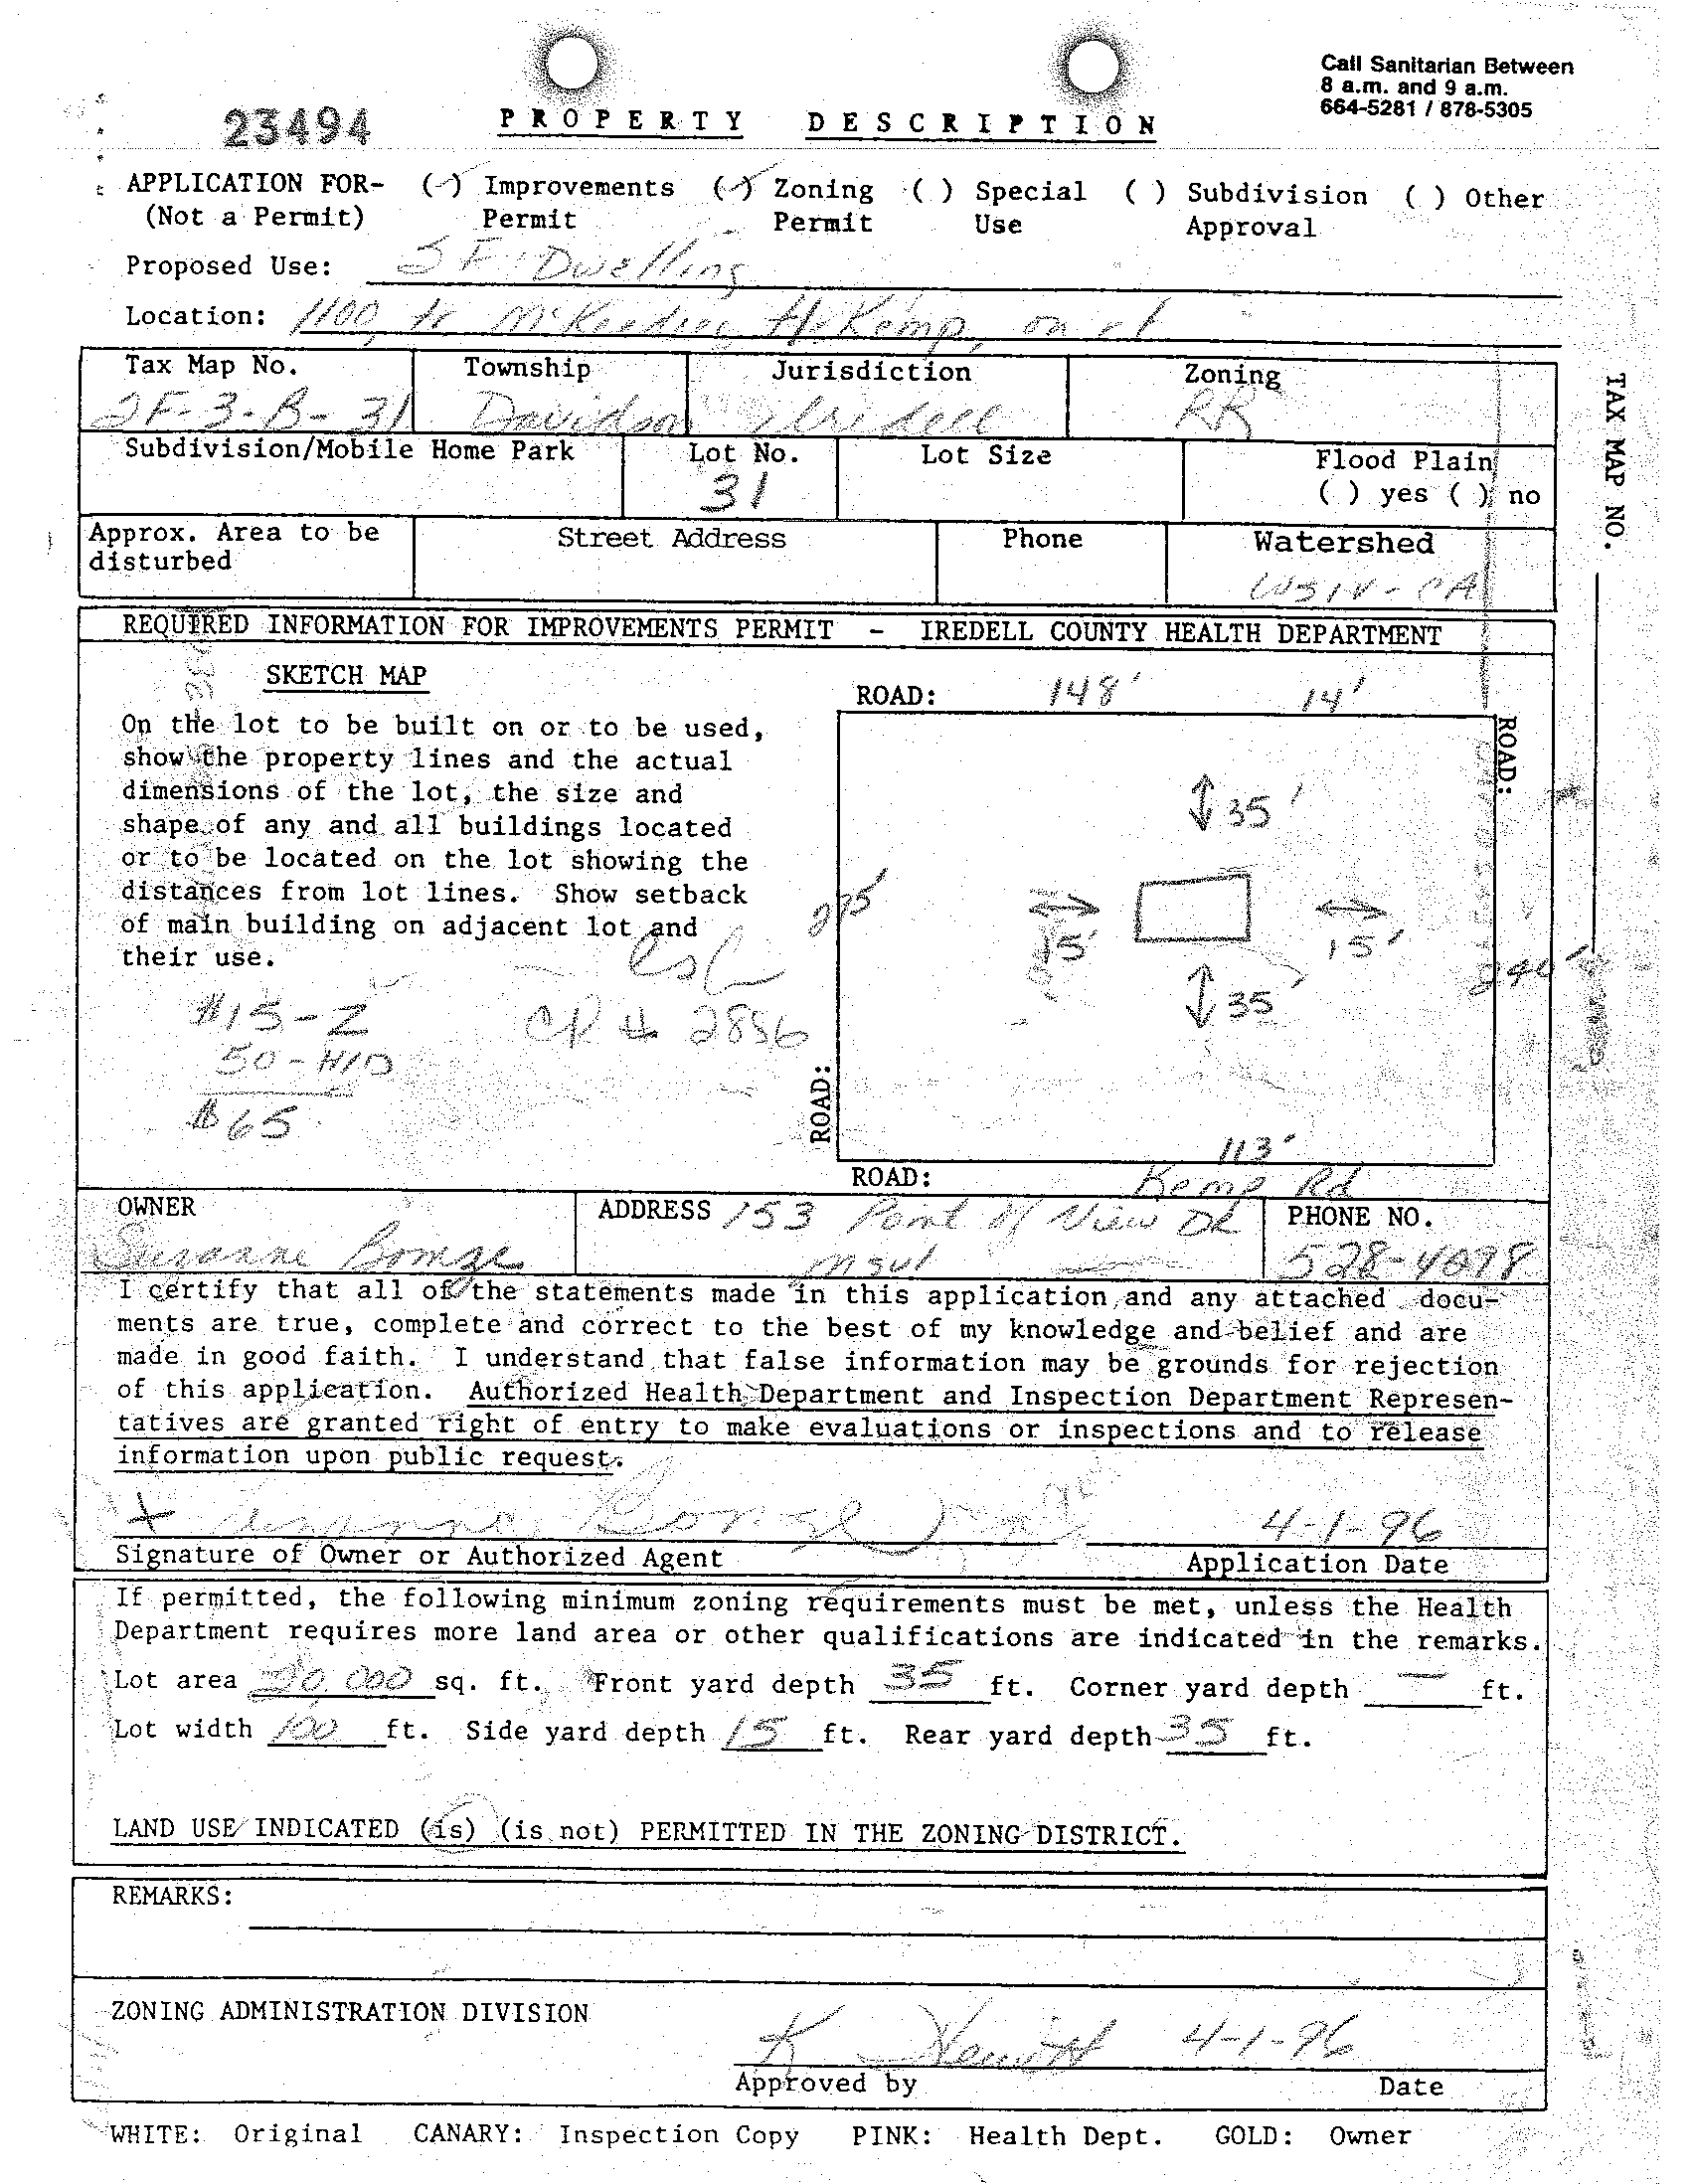 Call Sanitarian Between
8 a.m. and 9 a.m.
664-5281 / 878-5305
23494 PROPERTY DESCRIPTION
APPLICATION FOR- (✓) Improvements (✓) Zoning ( ) Special ( ) Subdivision ( ) Other
(Not a Permit) Permit Permit Use Approval
Proposed Use: SF Dwelling
Location: 1100, tr McKendree tr Kemp, on rt
Tax Map No. Township Jurisdiction Zoning
2F-3-B-31 Davidson Iredell RR
Subdivision/Mobile Home Park Lot No. Lot Size Flood Plain
31 ( ) yes ( ) no
Approx. Area to be Street Address Phone Watershed
disturbed
WSIV-CA
TAX MAP NO.
REQUIRED INFORMATION FOR IMPROVEMENTS PERMIT - IREDELL COUNTY HEALTH DEPARTMENT
SKETCH MAP
On the lot to be built on or to be used,
show the property lines and the actual
dimensions of the lot, the size and
shape of any and all buildings located
or to be located on the lot showing the
distances from lot lines. Show setback
of main building on adjacent lot and
their use.
$15-Z
50-H/D
$65
CK # 2856
ROAD: 148' 14'
ROAD:
35'
15' 15'
35'
ROAD:
113'
ROAD: Kemp Rd
OWNER ADDRESS 153 Point of View DR PHONE NO.
Suzanne Bomze msvl 528-4098
I certify that all of the statements made in this application and any attached docu-
ments are true, complete and correct to the best of my knowledge and belief and are
made in good faith. I understand that false information may be grounds for rejection
of this application. Authorized Health Department and Inspection Department Represen-
tatives are granted right of entry to make evaluations or inspections and to release
information upon public request.
4-1-96
Signature of Owner or Authorized Agent Application Date
If permitted, the following minimum zoning requirements must be met, unless the Health
Department requires more land area or other qualifications are indicated in the remarks.
Lot area 20,000 sq. ft. Front yard depth 35 ft. Corner yard depth — ft.
Lot width 100 ft. Side yard depth 15 ft. Rear yard depth 35 ft.
LAND USE INDICATED (is) (is not) PERMITTED IN THE ZONING DISTRICT.
REMARKS:
ZONING ADMINISTRATION DIVISION
K 4-1-96
Approved by Date
WHITE: Original CANARY: Inspection Copy PINK: Health Dept. GOLD: Owner